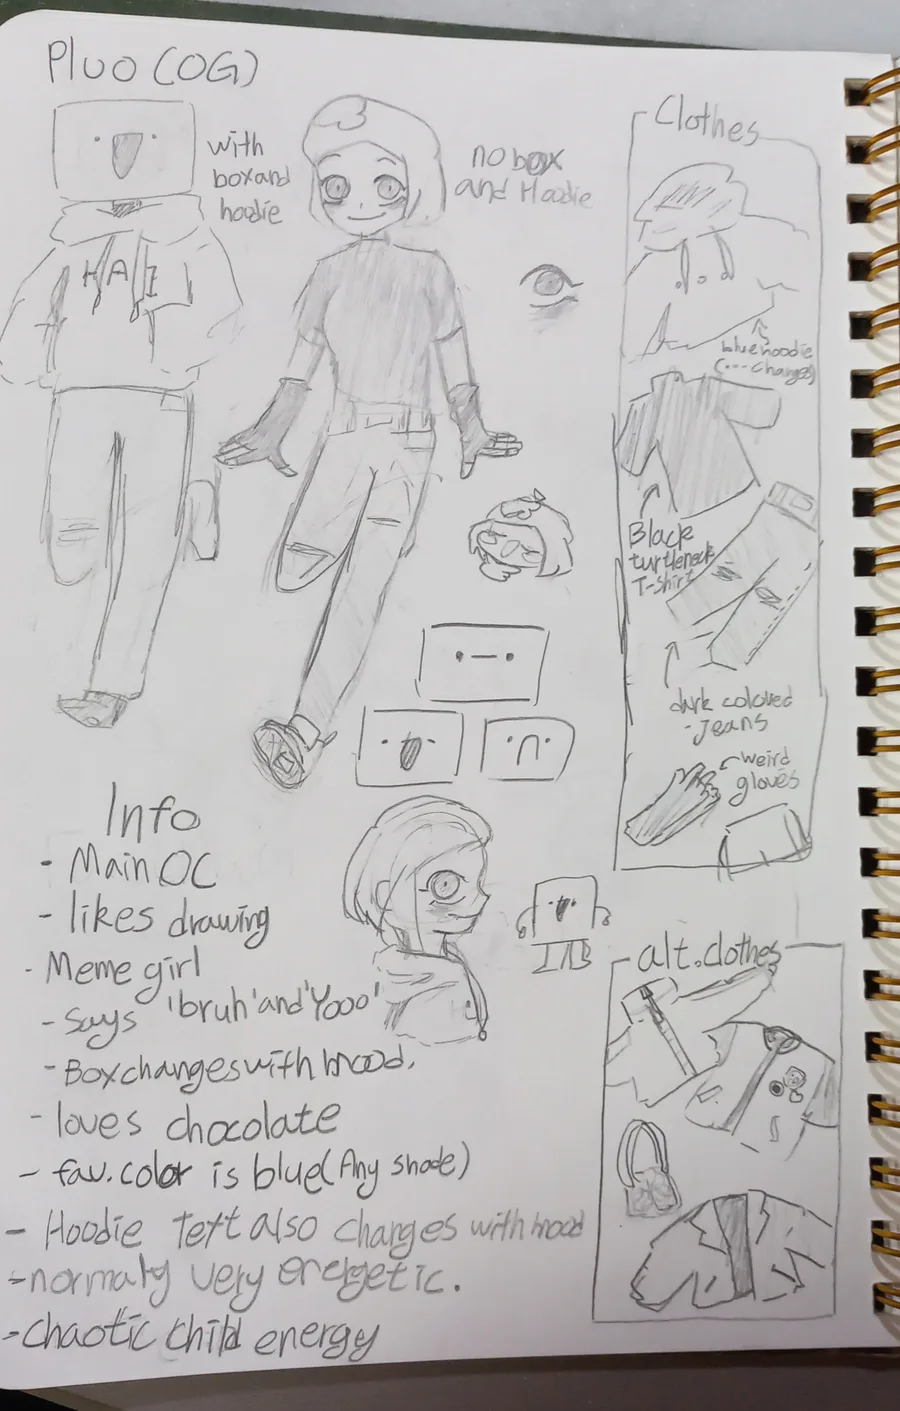 Pluo (OG)
with
box and
hoodie
HAI
no box
and Hoodie
Clothes
blue hoodie
(... changes)
Black
turtleneck
T-shirt
dark colored
-jeans
weird
gloves
Info
- Main OC
- likes drawing
- Meme girl
- Says 'bruh' and 'Yooo'
- Box changes with mood.
- loves chocolate
- fav. color is blue (Any shade)
- Hoodie text also changes with mood
- normaly very energetic.
- Chaotic child energy
alt. clothes